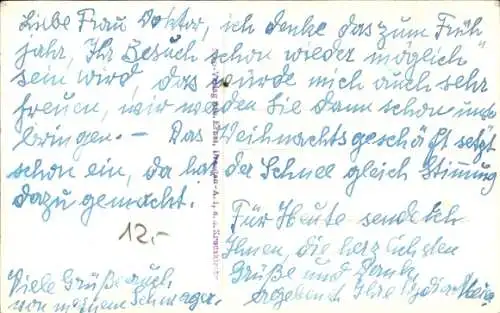 Liebe Frau Doktor, ich denke das zum Früh
jahr, Ihr Besuch schon wieder möglich
sein wird, das würde mich auch sehr
freuen, wir werden Sie dann schon unter
bringen. - Das Weihnachtsgeschäft setzt
schon ein, da hat der Schnee gleich Stimung
dazu gemacht!
Für Heute sende ich
Ihnen, die herzlichsten
Grüße und Danke,
ergebenst Ihre
12.-
Viele Grüße auch
von meinem Schwager.